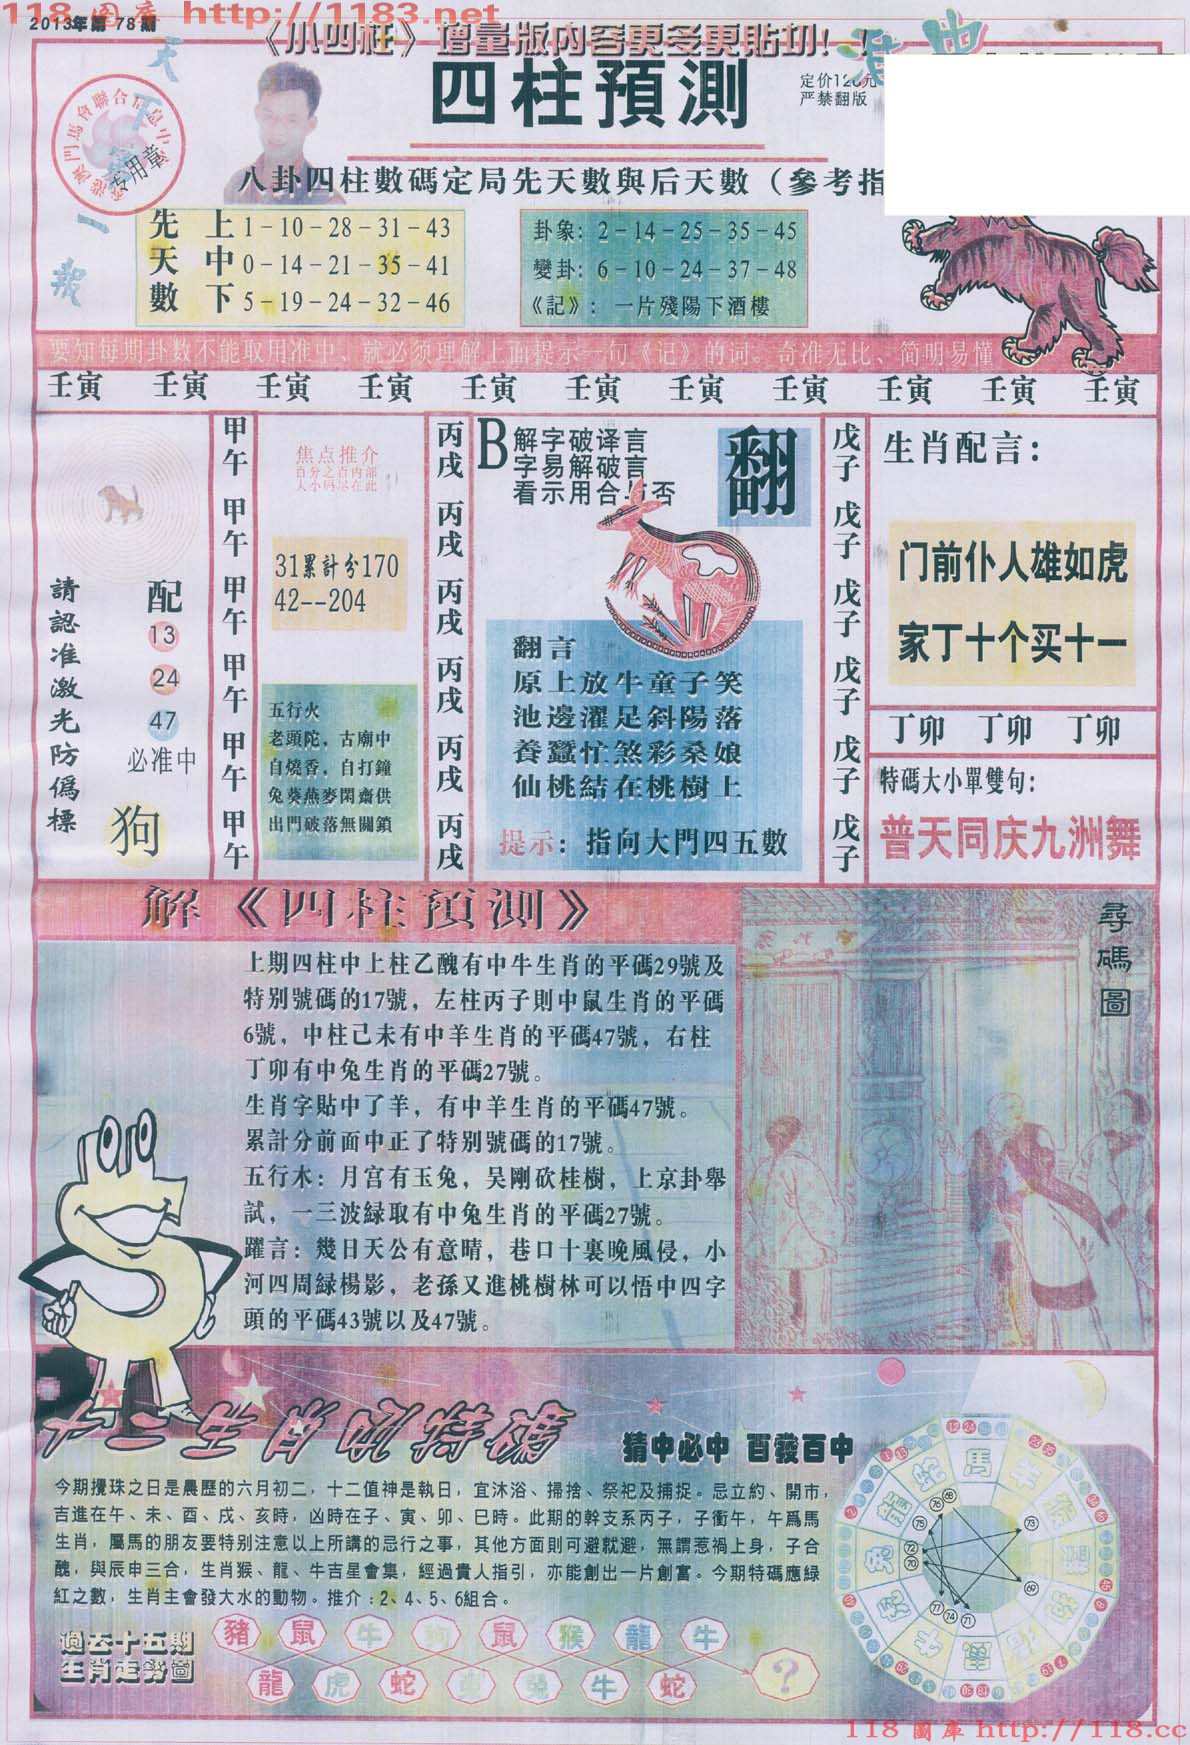 118 图库 http://1183.net
2013年第 78 期
《小四柱》增量版内容更多更贴切！！
四柱預測
定价120元
严禁翻版
港澳門馬會聯合信息中心
专用章
天下第一報
八卦四柱數碼定局先天數與后天數（參考指
先天數
上 1－10－28－31－43
中 0－14－21－35－41
下 5－19－24－32－46
卦象: 2－14－25－35－45
變卦: 6－10－24－37－48
《記》: 一片殘陽下酒樓
要知每期卦数不能取用准中、就必须理解上面提示一句《记》的词。奇准无比、简明易懂
壬寅 壬寅 壬寅 壬寅 壬寅 壬寅 壬寅 壬寅 壬寅 壬寅 壬寅
請認准激光防僞標
配
13
24
47
必准中
狗
甲午 甲午 甲午 甲午 甲午 甲午
焦点推介
百分之百内部
大小码尽在此
31累計分170
42--204
五行火
老頭陀，古廟中
自燒香，自打鐘
兔葵燕麥閑齋供
出門破落無關鎖
丙戌 丙戌 丙戌 丙戌 丙戌 丙戌
B
解字破译言
字易解破言
看示用合与否
翻
翻言
原上放牛童子笑
池邊濯足斜陽落
養蠶忙煞彩桑娘
仙桃結在桃樹上
提示：指向大門四五數
戊子 戊子 戊子 戊子 戊子 戊子
生肖配言：
门前仆人雄如虎
家丁十个买十一
丁卯 丁卯 丁卯
特碼大小單雙句：
普天同庆九洲舞
解《四柱預測》
上期四柱中上柱乙醜有中牛生肖的平碼29號及
特別號碼的17號，左柱丙子則中鼠生肖的平碼
6號，中柱己未有中羊生肖的平碼47號，右柱
丁卯有中兔生肖的平碼27號。
生肖字貼中了羊，有中羊生肖的平碼47號。
累計分前面中正了特別號碼的17號。
五行木：月宫有玉兔，吴剛砍桂樹，上京卦舉
試，一三波緑取有中兔生肖的平碼27號。
躍言：幾日天公有意晴，巷口十裏晚風侵，小
河四周緑楊影，老孫又進桃樹林可以悟中四字
頭的平碼43號以及47號。
尋碼圖
猜中必中 百發百中
今期攪珠之日是農歷的六月初二，十二值神是執日，宜沐浴、掃捨、祭祀及捕捉。忌立約、開市，
吉進在午、未、酉、戌、亥時，凶時在子、寅、卯、巳時。此期的幹支系丙子，子衝午，午爲馬
生肖，屬馬的朋友要特别注意以上所講的忌行之事，其他方面則可避就避，無謂惹禍上身，子合
醜，與辰申三合，生肖猴、龍、牛吉星會集，經過貴人指引，亦能創出一片創富。今期特碼應緑
紅之數，生肖主會發大水的動物。推介：2、4、5、6組合。
過去十五期
生肖走勢圖
豬 鼠 牛 狗 鼠 猴 龍 牛
龍 虎 蛇 兔 牛 蛇 ?
118 图库 http://118.cc